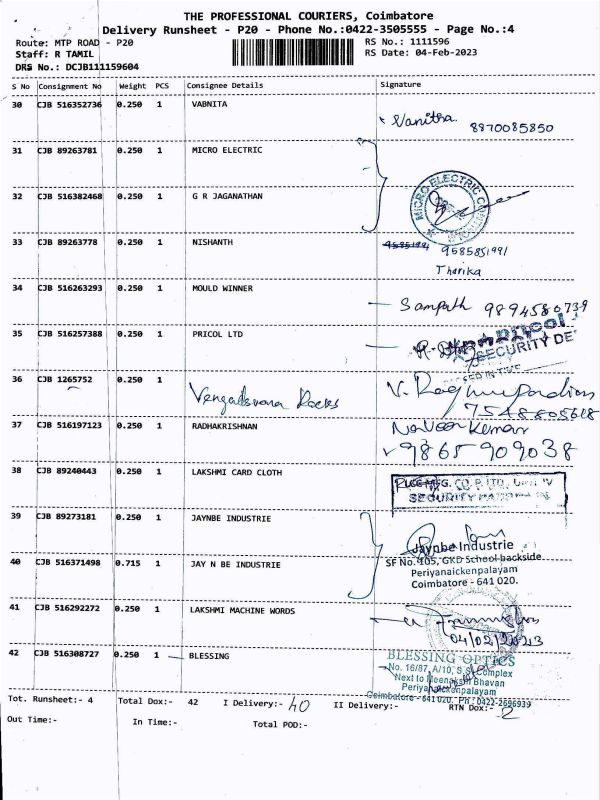 THE PROFESSIONAL COURIERS, Coimbatore
Delivery Runsheet - P20 - Phone No.:0422-3505555 - Page No.:4
Route: MTP ROAD - P20 RS No.: 1111596
Staff: R TAMIL RS Date: 04-Feb-2023
DRS No.: DCJB111159604
S No Consignment No Weight PCS Consignee Details Signature
30 CJB 516352736 0.250 1 VABNITA Vanitha 8870085850
31 CJB 89263781 0.250 1 MICRO ELECTRIC
32 CJB 516382468 0.250 1 G R JAGANATHAN MICRO ELECTRIC
33 CJB 89263778 0.250 1 NISHANTH 9585851991
Tharika
34 CJB 516263293 0.250 1 MOULD WINNER Sampath 9894580739
35 CJB 516257388 0.250 1 PRICOL LTD pricol
SECURITY DE
36 CJB 1265752 0.250 1 7548805618
37 CJB 516197123 0.250 1 RADHAKRISHNAN Naveen Kumar
9865909038
38 CJB 89240443 0.250 1 LAKSHMI CARD CLOTH
SECURITY
39 CJB 89273181 0.250 1 JAYNBE INDUSTRIE
Jaynbe Industrie
40 CJB 516371498 0.715 1 JAY N BE INDUSTRIE SF No. 105, GKD School backside
Periyanaickenpalayam
Coimbatore - 641 020.
41 CJB 516292272 0.250 1 LAKSHMI MACHINE WORDS
04/02/2023
42 CJB 516308727 0.250 1 BLESSING BLESSING OPTICS
No. 16/87, A/10, S.S. Complex
Next to Meenakshi Bhavan
Periyanaickenpalayam
Coimbatore - 641 020. Ph : 0422-2696939
Tot. Runsheet:- 4 Total Dox:- 42 I Delivery:- 40 II Delivery:- RTN Dox:- 2
Out Time:- In Time:- Total POD:-